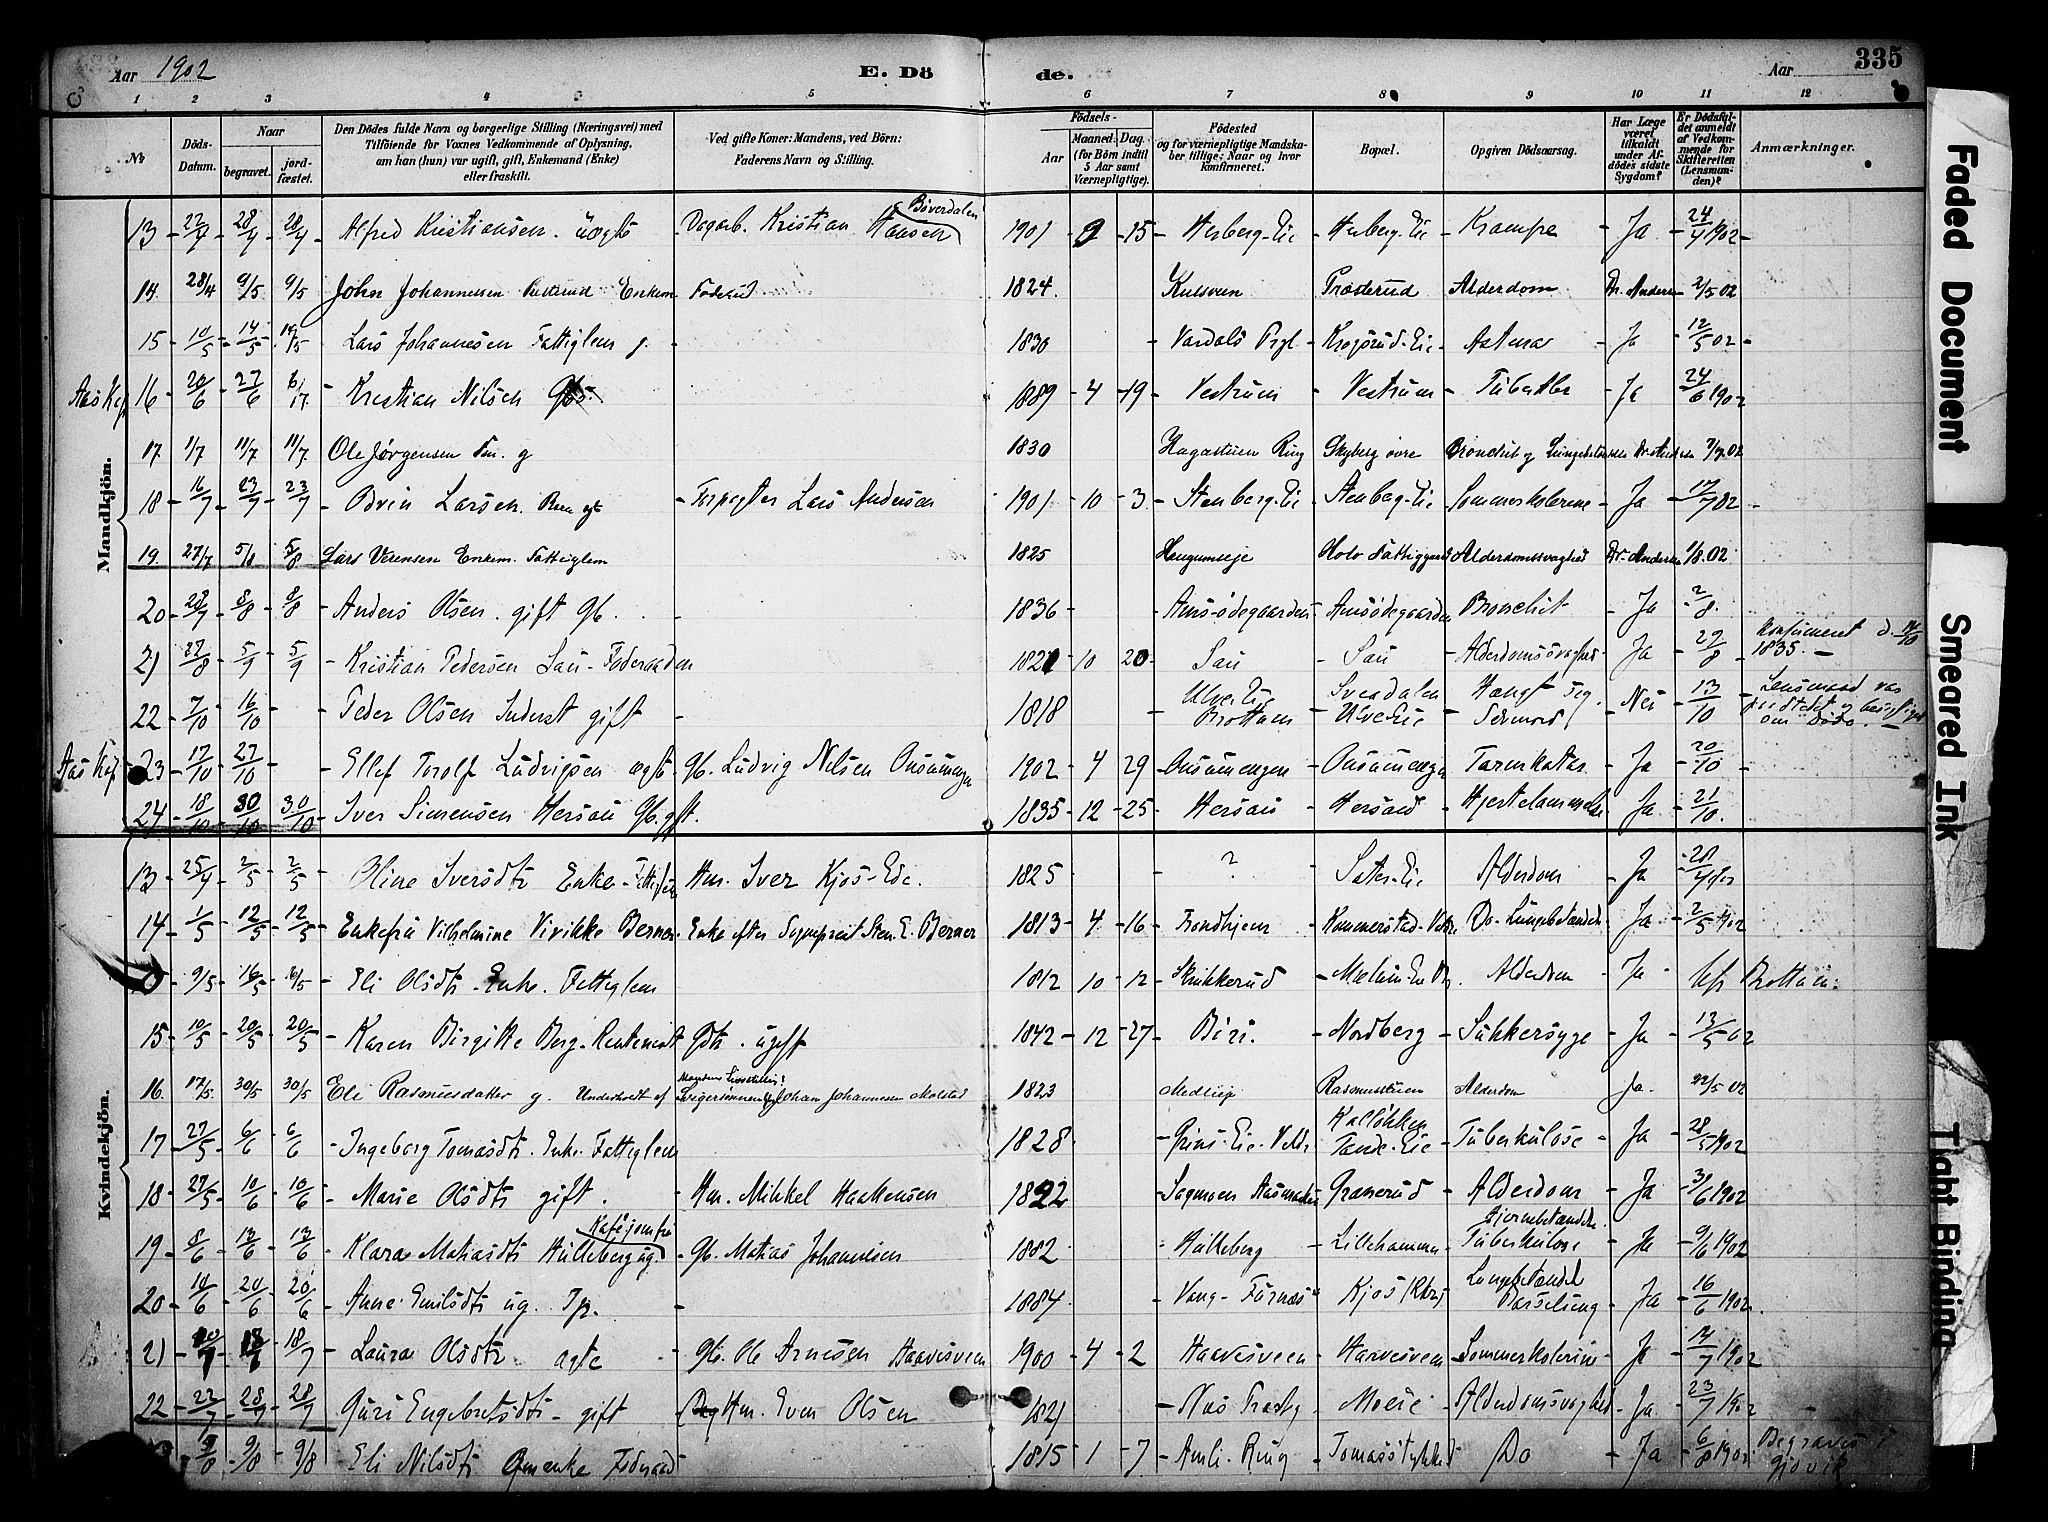 335
Aar 1902
E. Dö
de.
Aar
1 2 3 4 5 6 7 8 9 10 11 12
No
Döds-Datum.
Naar
begravet.
jord-fæstet.
Den Dödes fulde Navn og borgerlige Stilling (Næringsvei) med
Tilföiende for Voxnes Vedkommende af Oplysning,
om han (hun) var ugift, gift, Enkemand (Enke)
eller fraskilt.
Ved gifte Koner: Mandens, ved Börn:
Faderens Navn og Stilling.
Födsels-
Aar
Maaned. Dag.
(for Börn indtil
5 Aar samt
Værnepligtige).
Födested
og for værnepligtige Mandska-
ber tillige: Naar og hvor
konfirmeret.
Bopæl.
Opgiven Dödsaarsag.
Har Læge
været
tilkaldt
under Af-
dödes sidste
Sygdom?
Er Dödsfal-
det anmeldt
af Vedkom-
mende for
Skifteretten
(Lensman-
den)?
Anmærkninger.
Mandkjön.
13 28/4 28/4 Alfred Kristiansen uægte Dagarb. Kristian Hansen Böverdalen 1901 9 15 Herberg-Eie Herberg-Eie Krampe Ja 24/4 1902
14 28/4 9/5 9/5 John Johannesen Enkem Föderåd 1824 Kulsveen Præsterud Alderdom Dr. Andersen 2/5 02
15 10/5 14/5 14/5 Lars Johannesen Fattiglem g. 1830 Vardals Prgl Krogsrud-Eie Astma Ja 12/5 02
Aas Kap 16 20/6 27/6 6/7 Kristian Nilsen 1889 4 19 Vestrum Vestrum Tuberkler Ja 24/6 1902
17. 1/7 11/7 11/7 Ole Jørgensen g 1830 Hagastuen Ring Skyberg øvre Bronchit og Lungebetændelse Dr. Andersen 7/7 02
18 16/7 23/7 23/7 Odvin Larsen Barn ægte Forpagter Lars Andersen 1901 10 3 Stenberg-Eie Stenberg-Eie Sommerkolerine Ja 17/7 02
19. 27/7 5/8 5/8 Lars Enkem. Fattiglem 1825 Haugumseje Holo Fattiggaard Alderdomssvaghed Dr. Andersen 1/8. 02
20 28/7 8/8 8/8 Anders Olsen gift Gb. 1836 Aasödegaarden Aasödegaarden Bronchit Ja 2/8.
21 27/8 5/9 5/9 Kristian Pedersen Sau Föderaaden 1821 10 20 Sau Sau Alderdomssvaghed Ja 29/8 Konfirmeret d. 14/10 1835.
22 7/10 16/10 Peder Olsen Inderst gift 1818 Ulven Eie Brottum Sveadalen Ulven Eie Hængt sig. Selvmord Nei 13/10 Lensmand var om Död.
Aas Kap 23 17/10 27/10 Ellef Torolf Ludvigsen ægte Gb. Ludvig Nilsen Onsumengen 1902 4 29 Onsumengen Onsumengen Tarmkatar Ja 20/10
24 18/10 30/10 30/10 Iver Simensen Hersau Gb. gft. 1835 12 25 Hersau Hersau Hjertelammelse Ja 21/10.
Kvindekjön.
13 25/4 2/5 2/5 Oline Iversdtr Enke Fattiglem Hm. Iver Kjos-Eie. 1825 ? Sater-Eie Alderdom Ja 28/4 1902
14 1/5 12/5 12/5 Enkefru Vilhelmine Vivikke Berner Enke efter Sogneprest Sten E. Berner 1813 4 16 Trondhjem Kommerstad Do Lungebetændelse Ja 2/5 1902
9/5 16/5 16/5 Eli Olsdtr. Enke. Fattiglem 1812 10 12 Skrikkerud Alderdom Ja Brottum
15 10/5 20/5 20/5 Karen Birgitte Berg Rentenist Gdtr. ugift 1842 12 27 Biri. Nordberg Sukkersyge Ja 13/5 02
16. 17/5. 30/5 30/5 Eli Rasmusdatter g. Underholdt af Svigersönnen Johan Johannesen Molstad 1823 Rasmusstuen Alderdom Ja. 22/5 02
17 27/5 6/6 6/6 Ingeborg Tomasdtr. Enke Fattiglem 1828 Kallökken Tande-Eie Tuberkulose Ja 28/5 1902
18 27/5 10/6 10/6 Marie Olsdtr gift. Hm. Mikkel Haakensen 1822 Granerud Alderdom Ja 3/6 1902
19 8/6 13/6 13/6 Klara Matiasdtr Hulleberg ug. Kaféjomfru Gb. Matias Johannesen 1882 Hulleberg Lillehammer Hjernebetændelse Tuberkulose Ja 9/6 1902
20 10/6 20/6 20/6 Anne Emilsdtr ug. Tp. 1884 Vang-Furnæs Kjos Lungebetændel Barselseng Ja 16/6 1902.
21 10/7 18/7 18/7 Laura Olsdtr ægte Gb. Ole Arnesen Haavesveen 1900 4 2 Haavesveen Haavesveen Sommerkolerine Ja 14/7 1902
22 22/7 28/7 28/7 Guri Engebretsdtr gift Hm. Even Olsen 1821 Næs Moeie Alderdomssvaghed Ja 23/7 1902
9/8 9/8 Eli Nilsdtr Gmenke Föderaad 1815 1 7 Amli. Ring Tomasstykket Do Ja 6/8 1902 Begraves i Gjövik
Faded Document
Smeared Ink
Tight Binding